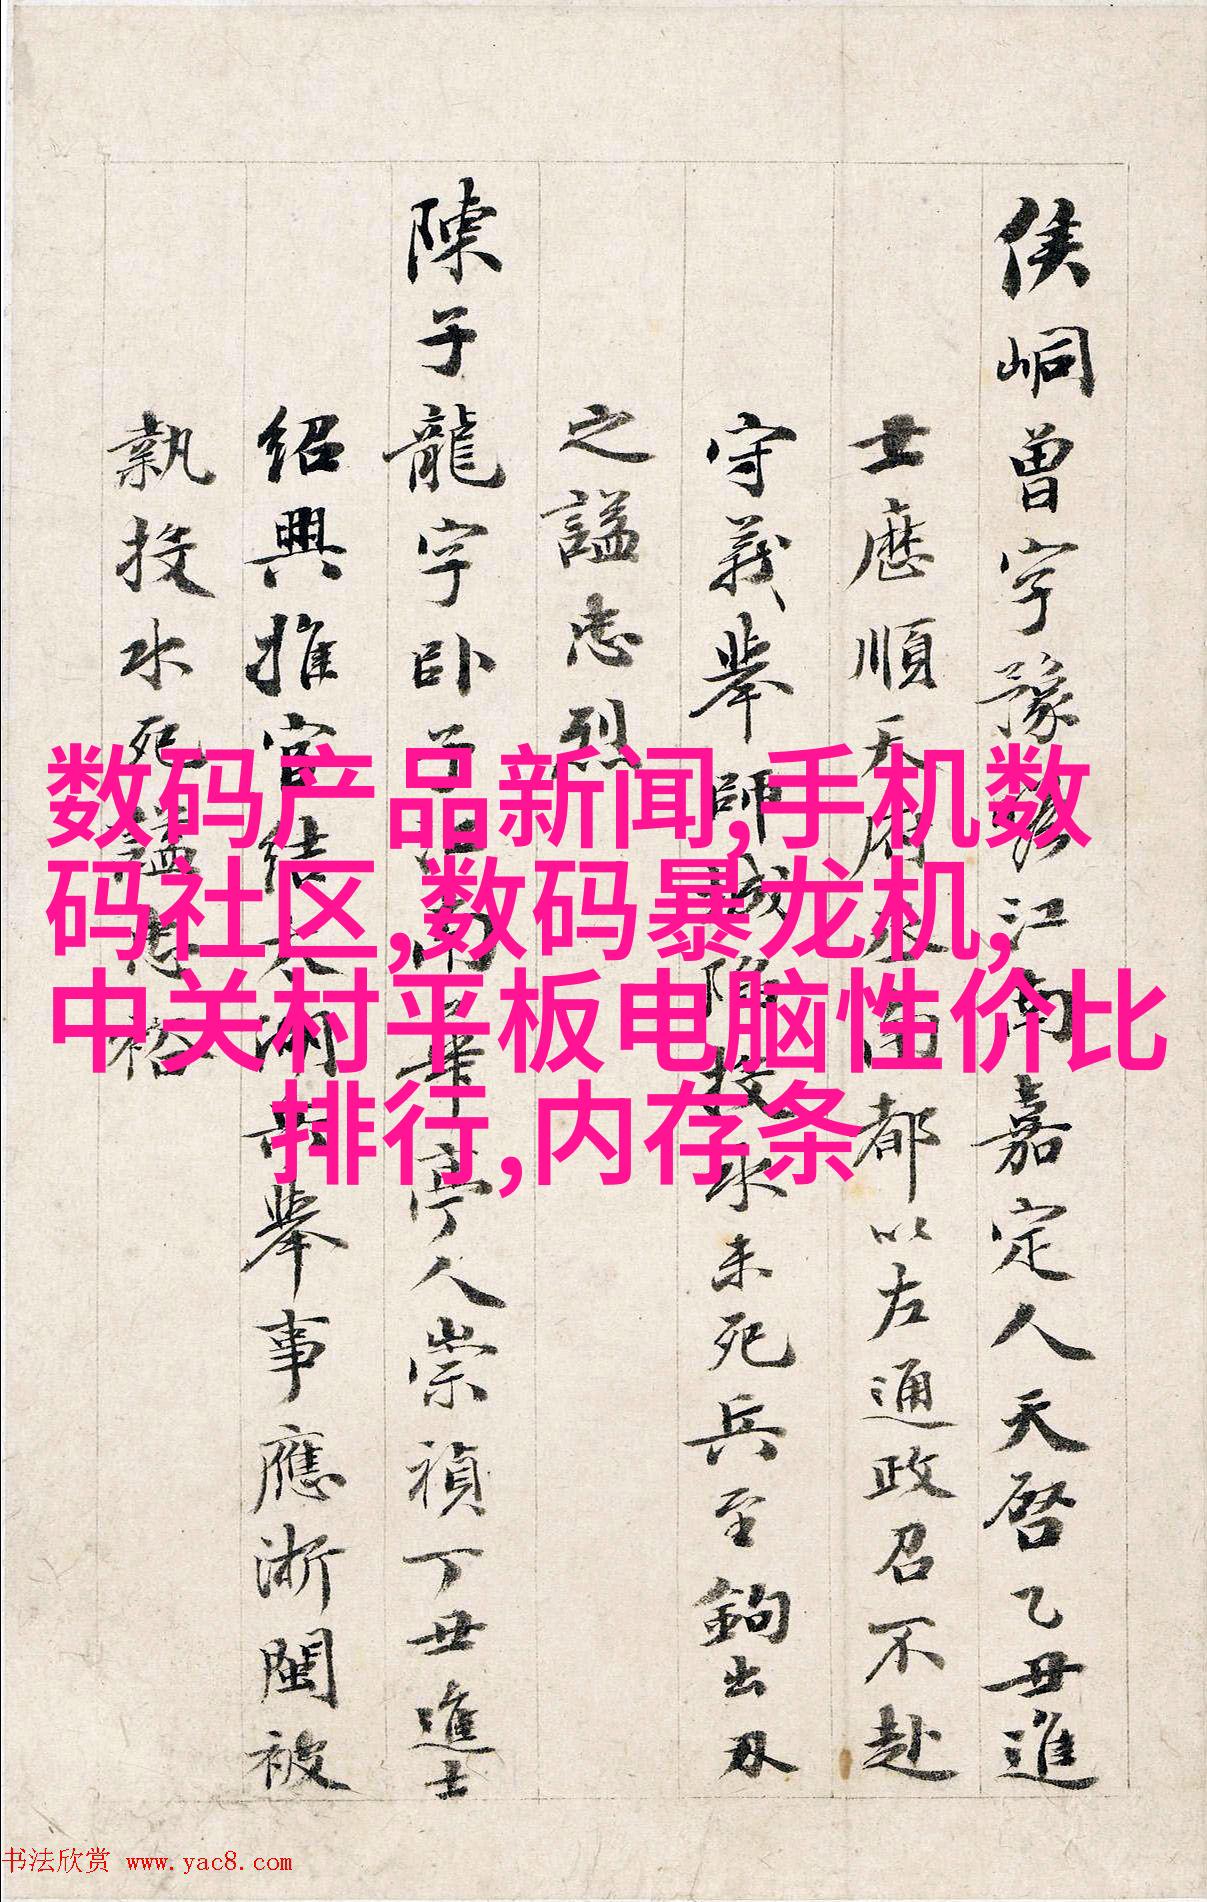 侯峒曾字豫瞻江南嘉定人天啓乙丑進
士歷順天府丞南都以左通政召不赴
守義舉師城陷投水未死兵至鉤出刃
之謚忠烈
陳子龍字臥子江南華亭人崇禎丁丑進士
紹興推官結太湖兵舉事應浙閩被
執投水死謚忠裕
数码产品新闻,手机数
码社区,数码暴龙机,
中关村平板电脑性价比
排行,内存条
书法欣赏 www.yac8.com